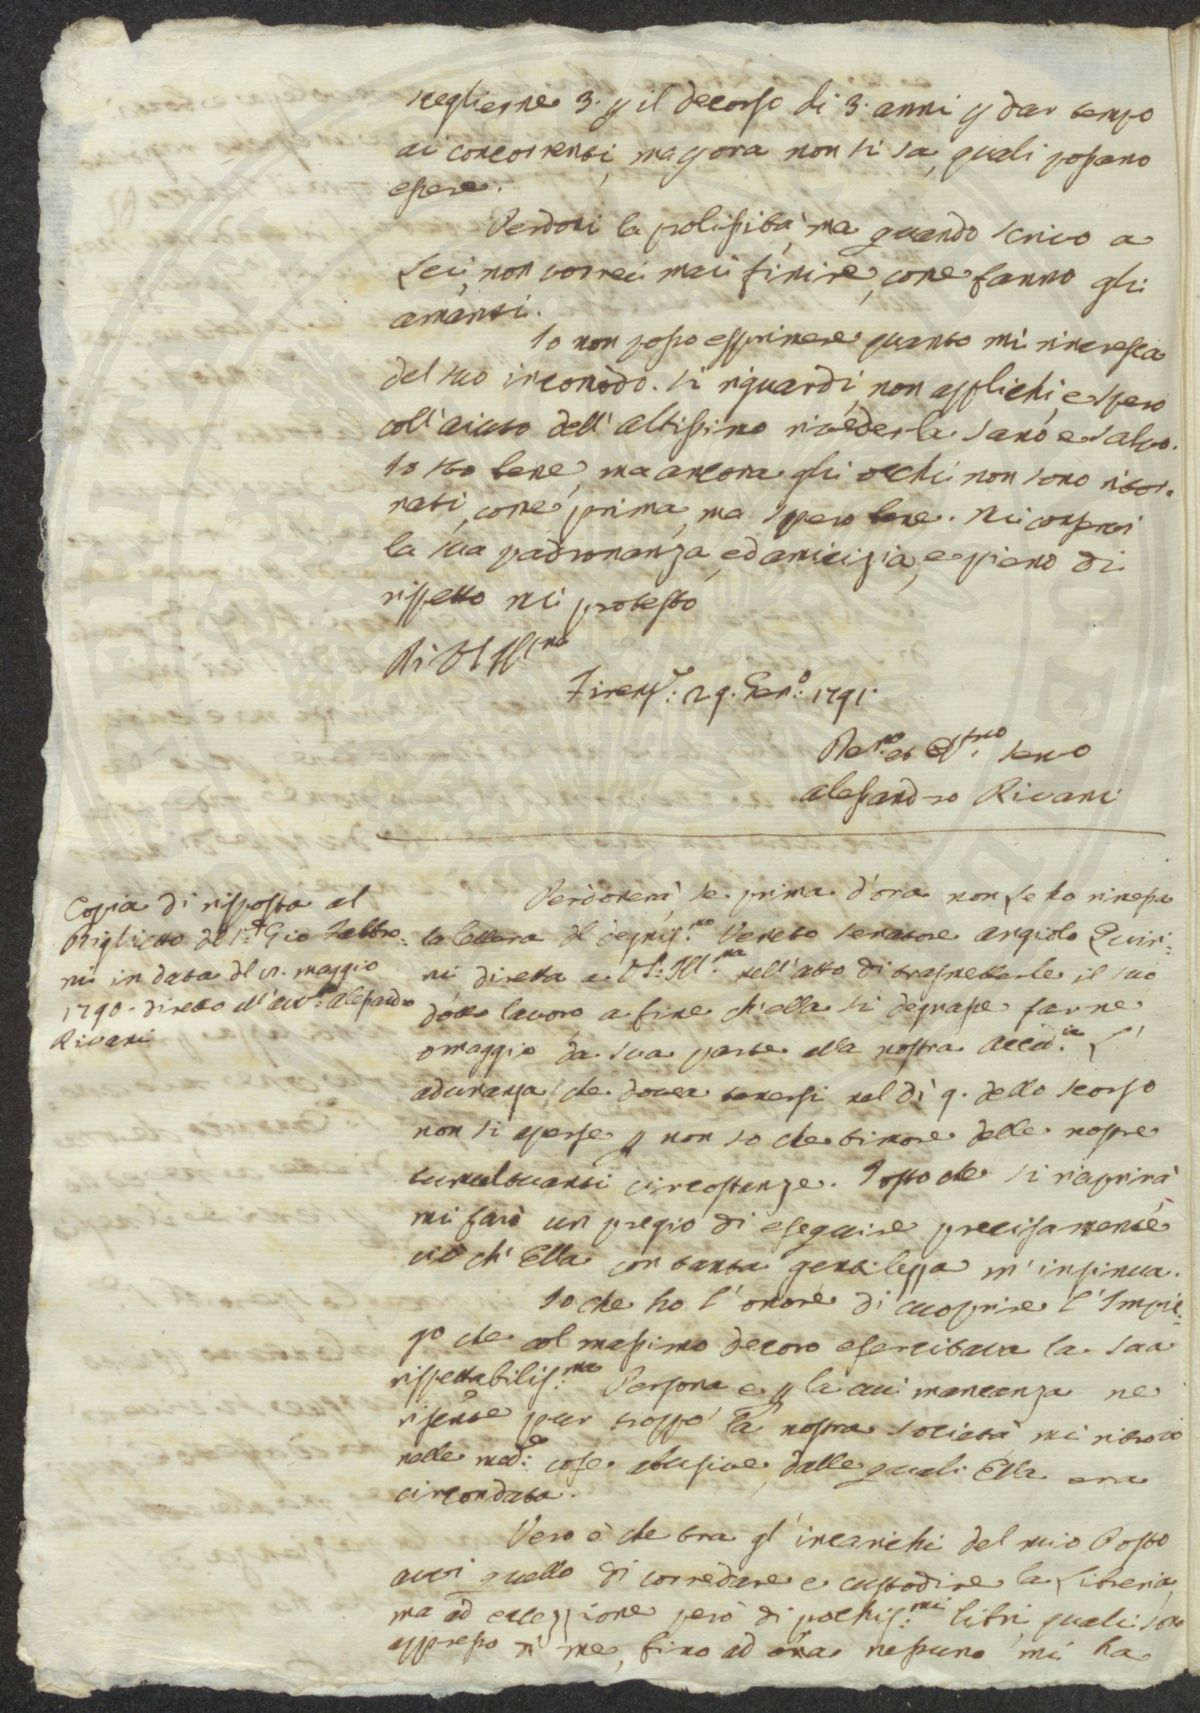 sceglierne 3. p il decorso di 3. anni p dar tempo
ai concorrenti, ma p ora non si sa, quali possano
essere.
Perdoni la prolissità, ma quando scrivo a
Lei, non vorrei mai finire, come fanno gli
amanti.
Io non posso esprimere quanto mi rincresca
del suo incomodo. Si riguardi, non applichi, e spero
coll'aiuto dell'altissimo rivederla sano e salvo.
Io sto bene, ma ancora gli occhi non sono ritor-
nati, come prima, ma spero bene. Mi conservi
la sua padronanza, ed amicizia, e pieno di
rispetto mi protesto
Di VS Ill.ma
Firenz.e: 29. Gen.o: 1791.
De.mo ed Obb.mo servo
Alessandro Rivani
Copia di risposta al
Biglietto del S.r Gio Fabbro-
ni in data del dì maggio
1790. diretto all'avv.to Alessandro
Rivani
Perdonerà, se prima d'ora non Le ho rimessa
la lettera del degnis.mo Veneto senatore Angiolo Quiri-
ni diretta a VS. Ill.ma nell'atto di trasmetterle il suo
dotto lavoro a fine ch'ella si degnasse farne
omaggio da sua parte alla nostra Accad.ia L'
adunanza, che dovea tenersi nel dì 9. dello scorso
non si aperse p non so che timore delle nostre
tumultuanti circostanze. Tosto che si riaprirà
mi farò un pregio di eseguire precisamente
ciò ch'Ella con tanta gentilezza m'insinua.
Io che ho l'onore di cuoprire l'Impie-
go che col massimo decoro esercitava la sua
rispettabilis.ma Persona e p la cui mancanza ne
risente pur troppo la nostra Società, mi ritrovo
nelle med.e cose abusive, dalle quali Ella era
circondata.
Vero è che tra gl'incarichi del mio Posto
avvi quello di corredare e custodire la Libreria,
ma ad eccezzione però di pochis.mi libri, quali sono
appresso di me, fino ad ora nessuno mi ha